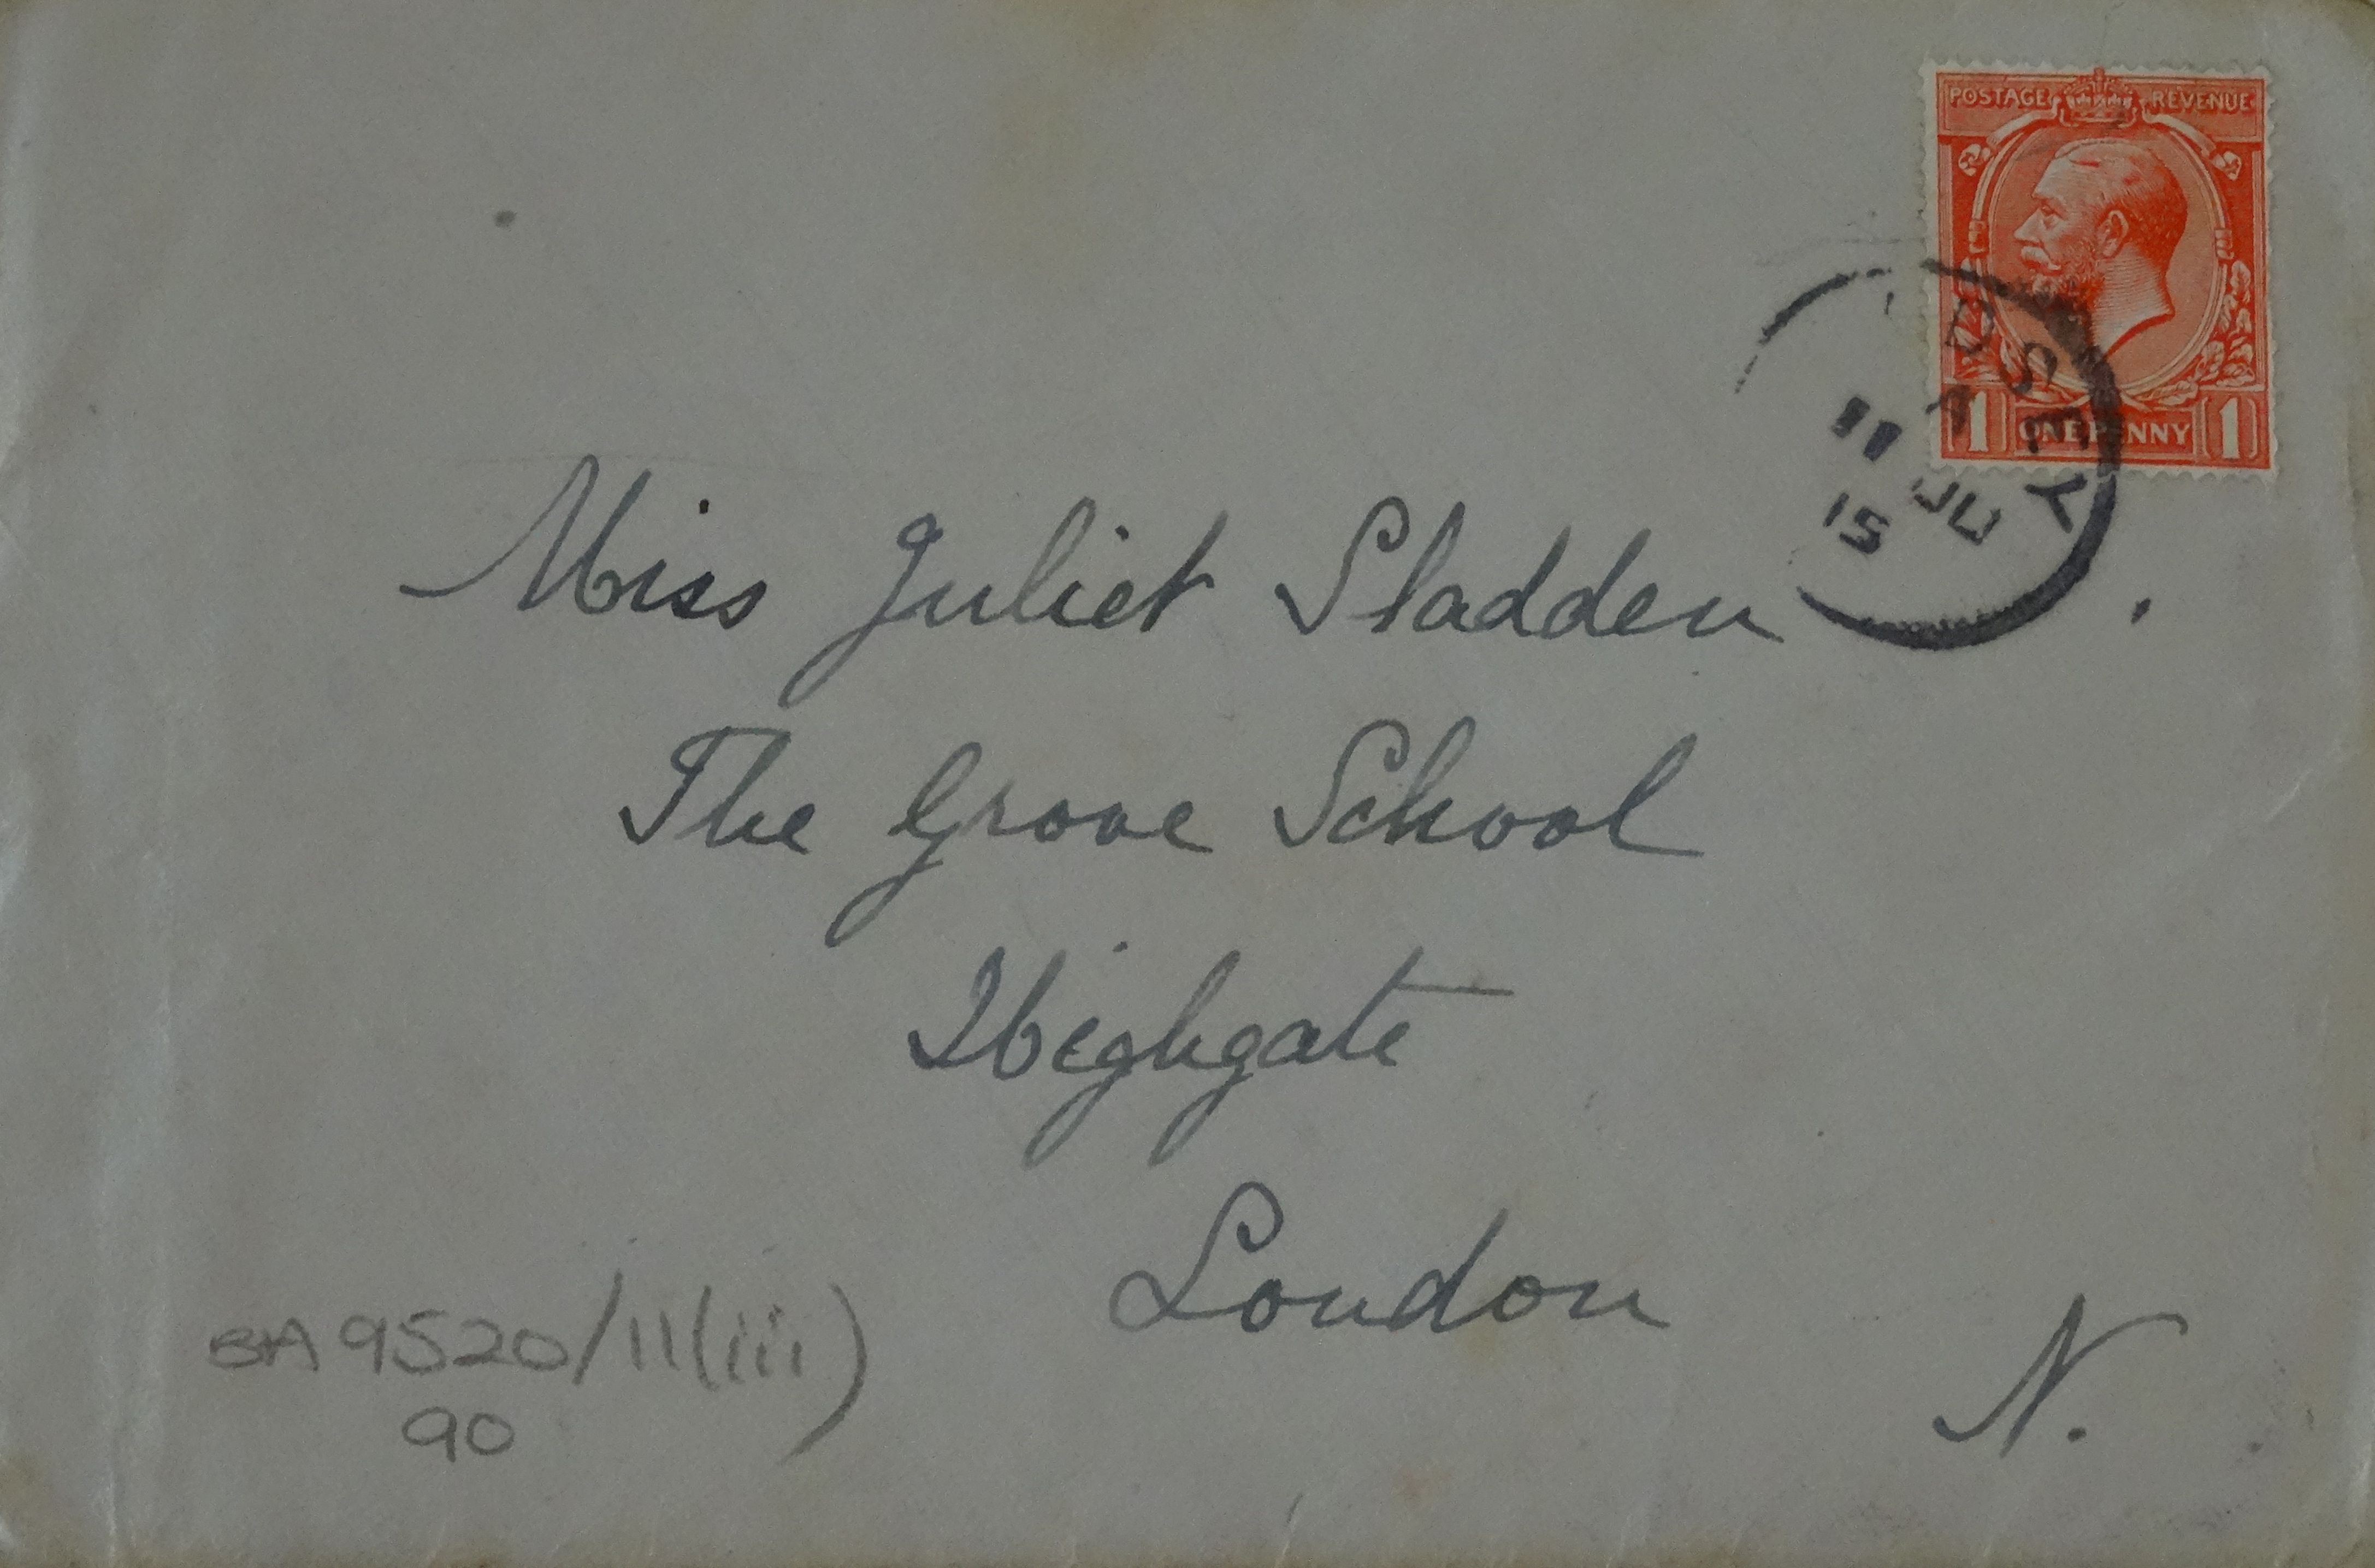 POSTAGE REVENUE
1 ONE PENNY 1
DSEY
11 JU
15
Miss Juliet Sladden
The Grove School
Highgate
London
N.
BA 9520/11(iii)
90